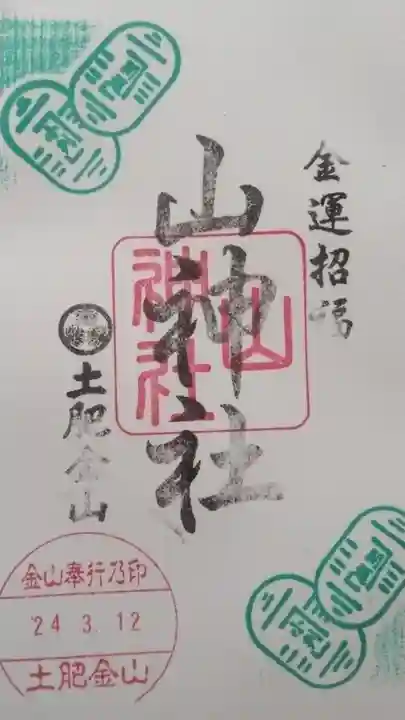 金運招福
山神社
山神社
土肥金山
金山奉行乃印
24.3.12
土肥金山